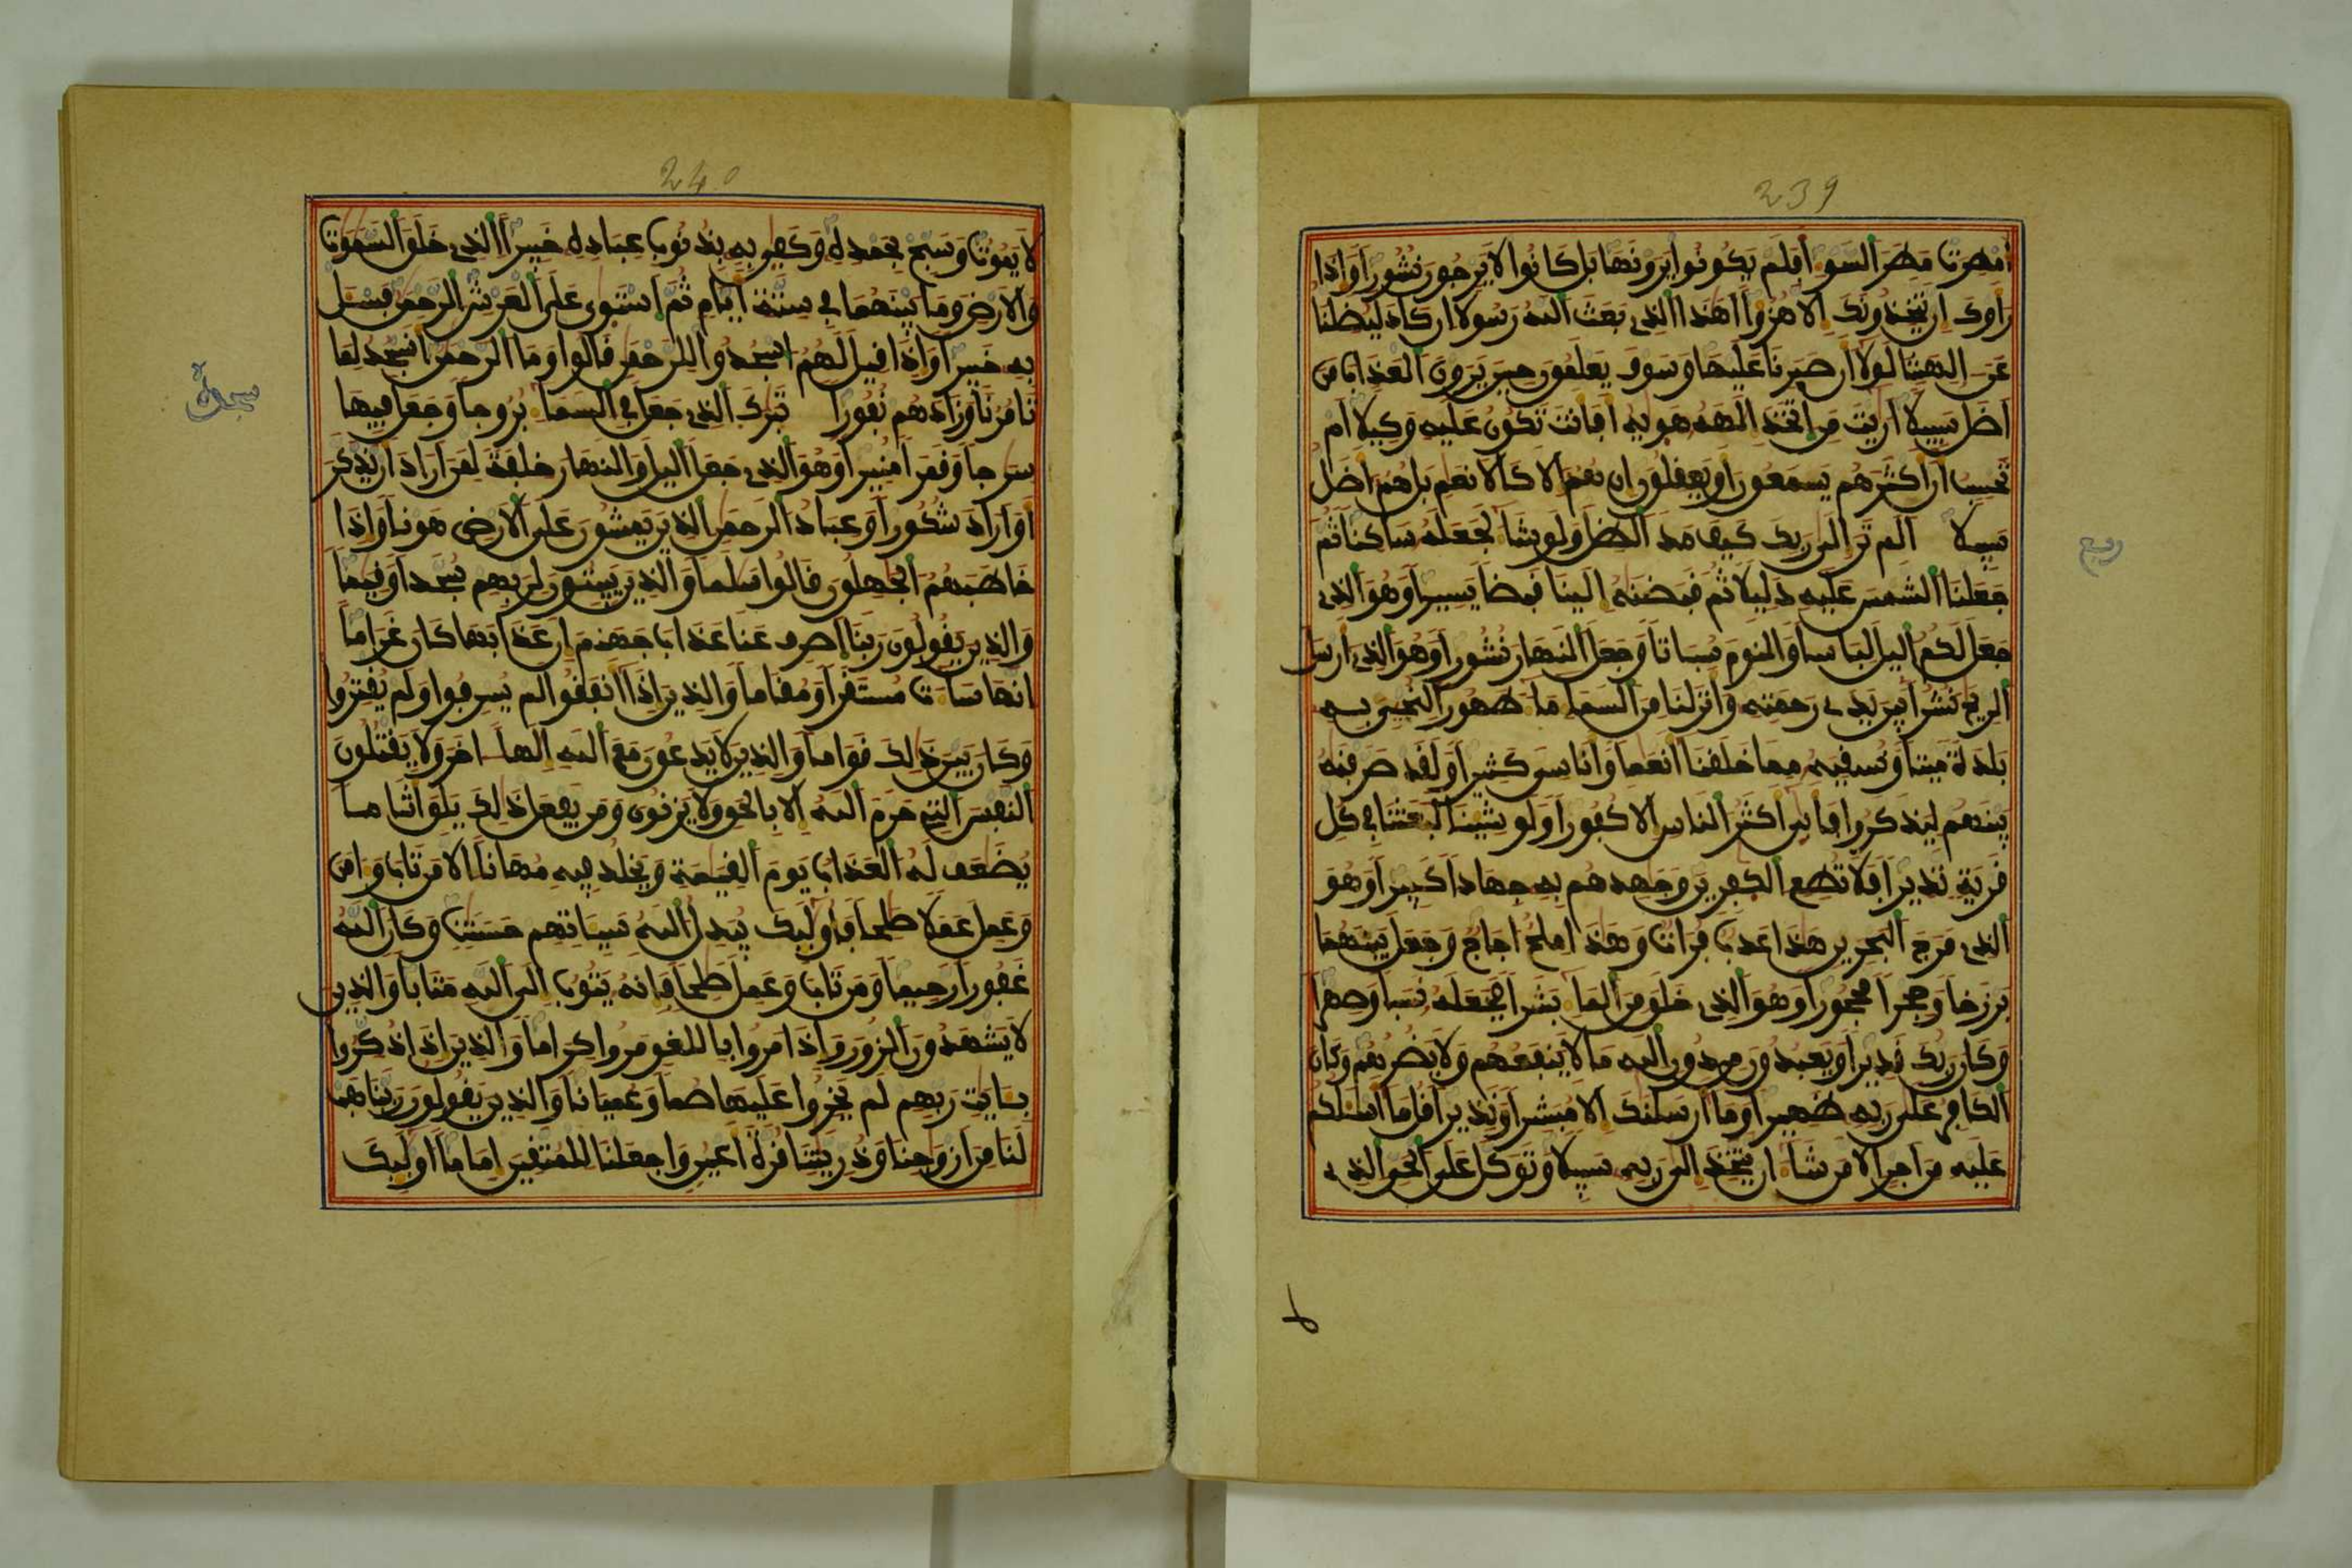 239
أمطرت مطر السوء أفلم يكونوا يرونها بل كانوا لا يرجون نشورا وإذا
رأوك إن يتخذونك إلا هزؤا أهذا الذي بعث الله رسولا إن كاد ليضلنا
عن ءالهتنا لولا أن صبرنا عليها وسوف يعلمون حين يرون العذاب من
أضل سبيلا أريت من اتخذ إلهه هويه أفأنت تكون عليه وكيلا أم
تحسب أن أكثرهم يسمعون أو يعقلون إن هم إلا كالأنعم بل هم أضل
سبيلا ألم تر إلى ربك كيف مد الظل ولو شاء لجعله ساكنا ثم
جعلنا الشمس عليه دليلا ثم قبضنه إلينا قبضا يسيرا وهو الذي
جعل لكم اليل لباسا والنوم سباتا وجعل النهار نشورا وهو الذي أرسل
الريح نشرا بين يدي رحمته وأنزلنا من السماء ماء طهورا لنحيي به
بلدة ميتا ونسقيه مما خلقنا أنعما وأناسي كثيرا ولقد صرفنه
بينهم ليذكروا فأبى أكثر الناس إلا كفورا ولو شينا لبعثنا في كل
قرية نذيرا فلا تطع الكفرين وجهدهم به جهادا كبيرا وهو
الذي مرج البحرين هذا عذب فرات وهذا ملح أجاج وجعل بينهما
برزخا وحجرا محجورا وهو الذي خلق من الماء بشرا فجعله نسبا وصهرا
وكان ربك قديرا ويعبدون من دون الله ما لا ينفعهم ولا يضرهم وكان
الكافر على ربه ظهيرا وما أرسلنك إلا مبشرا ونذيرا قل ما أسلكم
عليه من أجر إلا من شاء أن يتخذ إلى ربه سبيلا وتوكل على الحي الذي
ربع
240
لا يموت وسبح بحمده وكفى به بذنوب عباده خبيرا الذي خلق السموت
والأرض وما بينهما في ستة أيام ثم استوى على العرش الرحمن فسل
به خبيرا وإذا قيل لهم اسجدوا للرحمن قالوا وما الرحمن أنسجد لما
تامرنا وزادهم نفورا تبرك الذي جعل في السماء بروجا وجعل فيها
سرجا وقمرا منيرا وهو الذي جعل اليل والنهار خلفة لمن أراد أن يذكر
أو أراد شكورا وعباد الرحمن الذين يمشون على الأرض هونا وإذا
خاطبهم الجهلون قالوا سلما والذين يبيتون لربهم سجدا وقيما
والذين يقولون ربنا اصرف عنا عذاب جهنم إن عذابها كان غراما
إنها ساءت مستقرا ومقاما والذين إذا أنفقوا لم يسرفوا ولم يقتروا
وكان بين ذلك قواما والذين لا يدعون مع الله إلها ءاخر ولا يقتلون
النفس التي حرم الله إلا بالحق ولا يزنون ومن يفعل ذلك يلق أثاما
يضعف له العذاب يوم القيمة ويخلد فيه مهانا إلا من تاب وءامن
وعمل عملا صلحا فأولئك يبدل الله سيئاتهم حسنت وكان الله
غفورا رحيما ومن تاب وعمل صلحا فإنه يتوب إلى الله متابا والذين
لا يشهدون الزور وإذا مروا باللغو مروا كراما والذين إذا ذكروا
بئايت ربهم لم يخروا عليها صما وعميانا والذين يقولون ربنا هب
لنا من أزوجنا وذريتنا قرة أعين واجعلنا للمتقين إماما أولئك